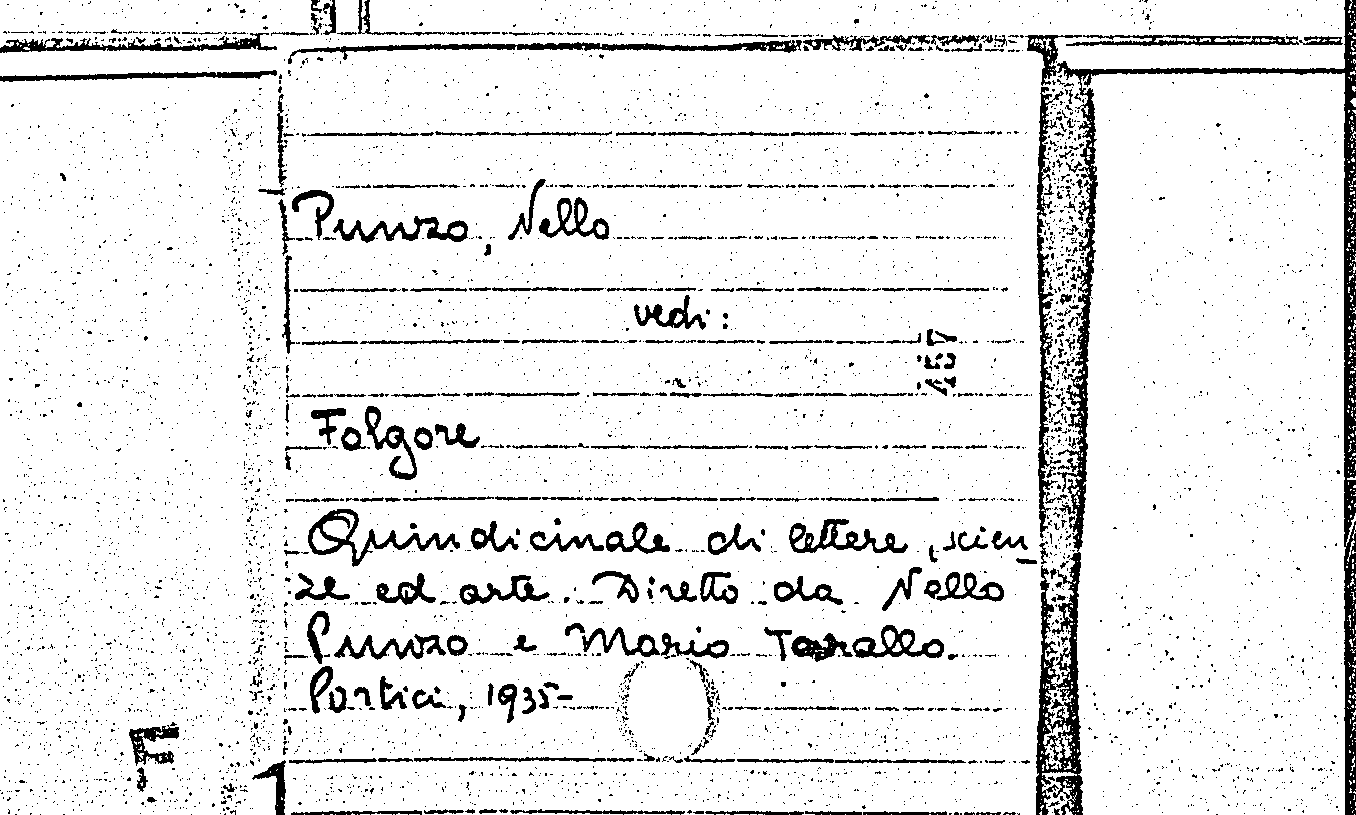 Punzo, Nello
vedi:
457
Folgore
Quindicinale di lettere, scien_
ze ed arte. Diretto da Nello
Punzo e Mario Tarallo.
Portici, 1935-